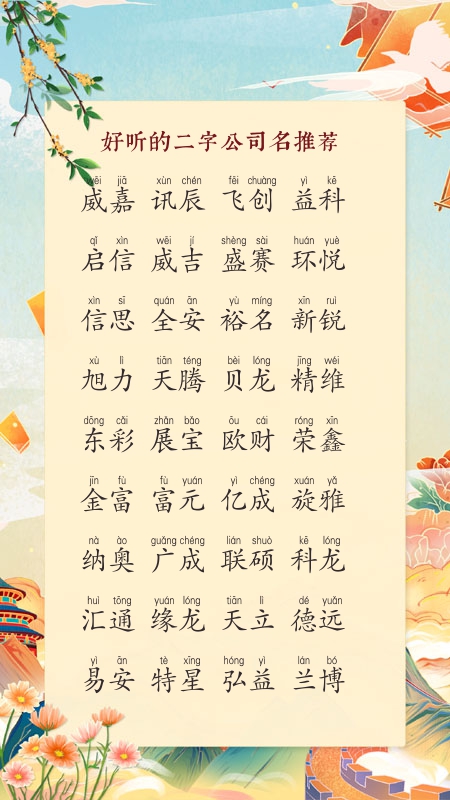 好听的二字公司名推荐
wēi jiā xùn chén fēi chuàng yì kē
威嘉 讯辰 飞创 益科
qǐ xìn wēi jí shèng sài huán yuè
启信 威吉 盛赛 环悦
xìn sī quán ān yù míng xīn ruì
信思 全安 裕名 新锐
xù lì tiān téng bèi lóng jīng wéi
旭力 天腾 贝龙 精维
dōng cǎi zhǎn bǎo ōu cái róng xīn
东彩 展宝 欧财 荣鑫
jīn fù fù yuán yì chéng xuán yǎ
金富 富元 亿成 旋雅
nà ào guǎng chéng lián shuò kē lóng
纳奥 广成 联硕 科龙
huì tōng yuán lóng tiān lì dé yuǎn
汇通 缘龙 天立 德远
yì ān tè xīng hóng yì lán bó
易安 特星 弘益 兰博